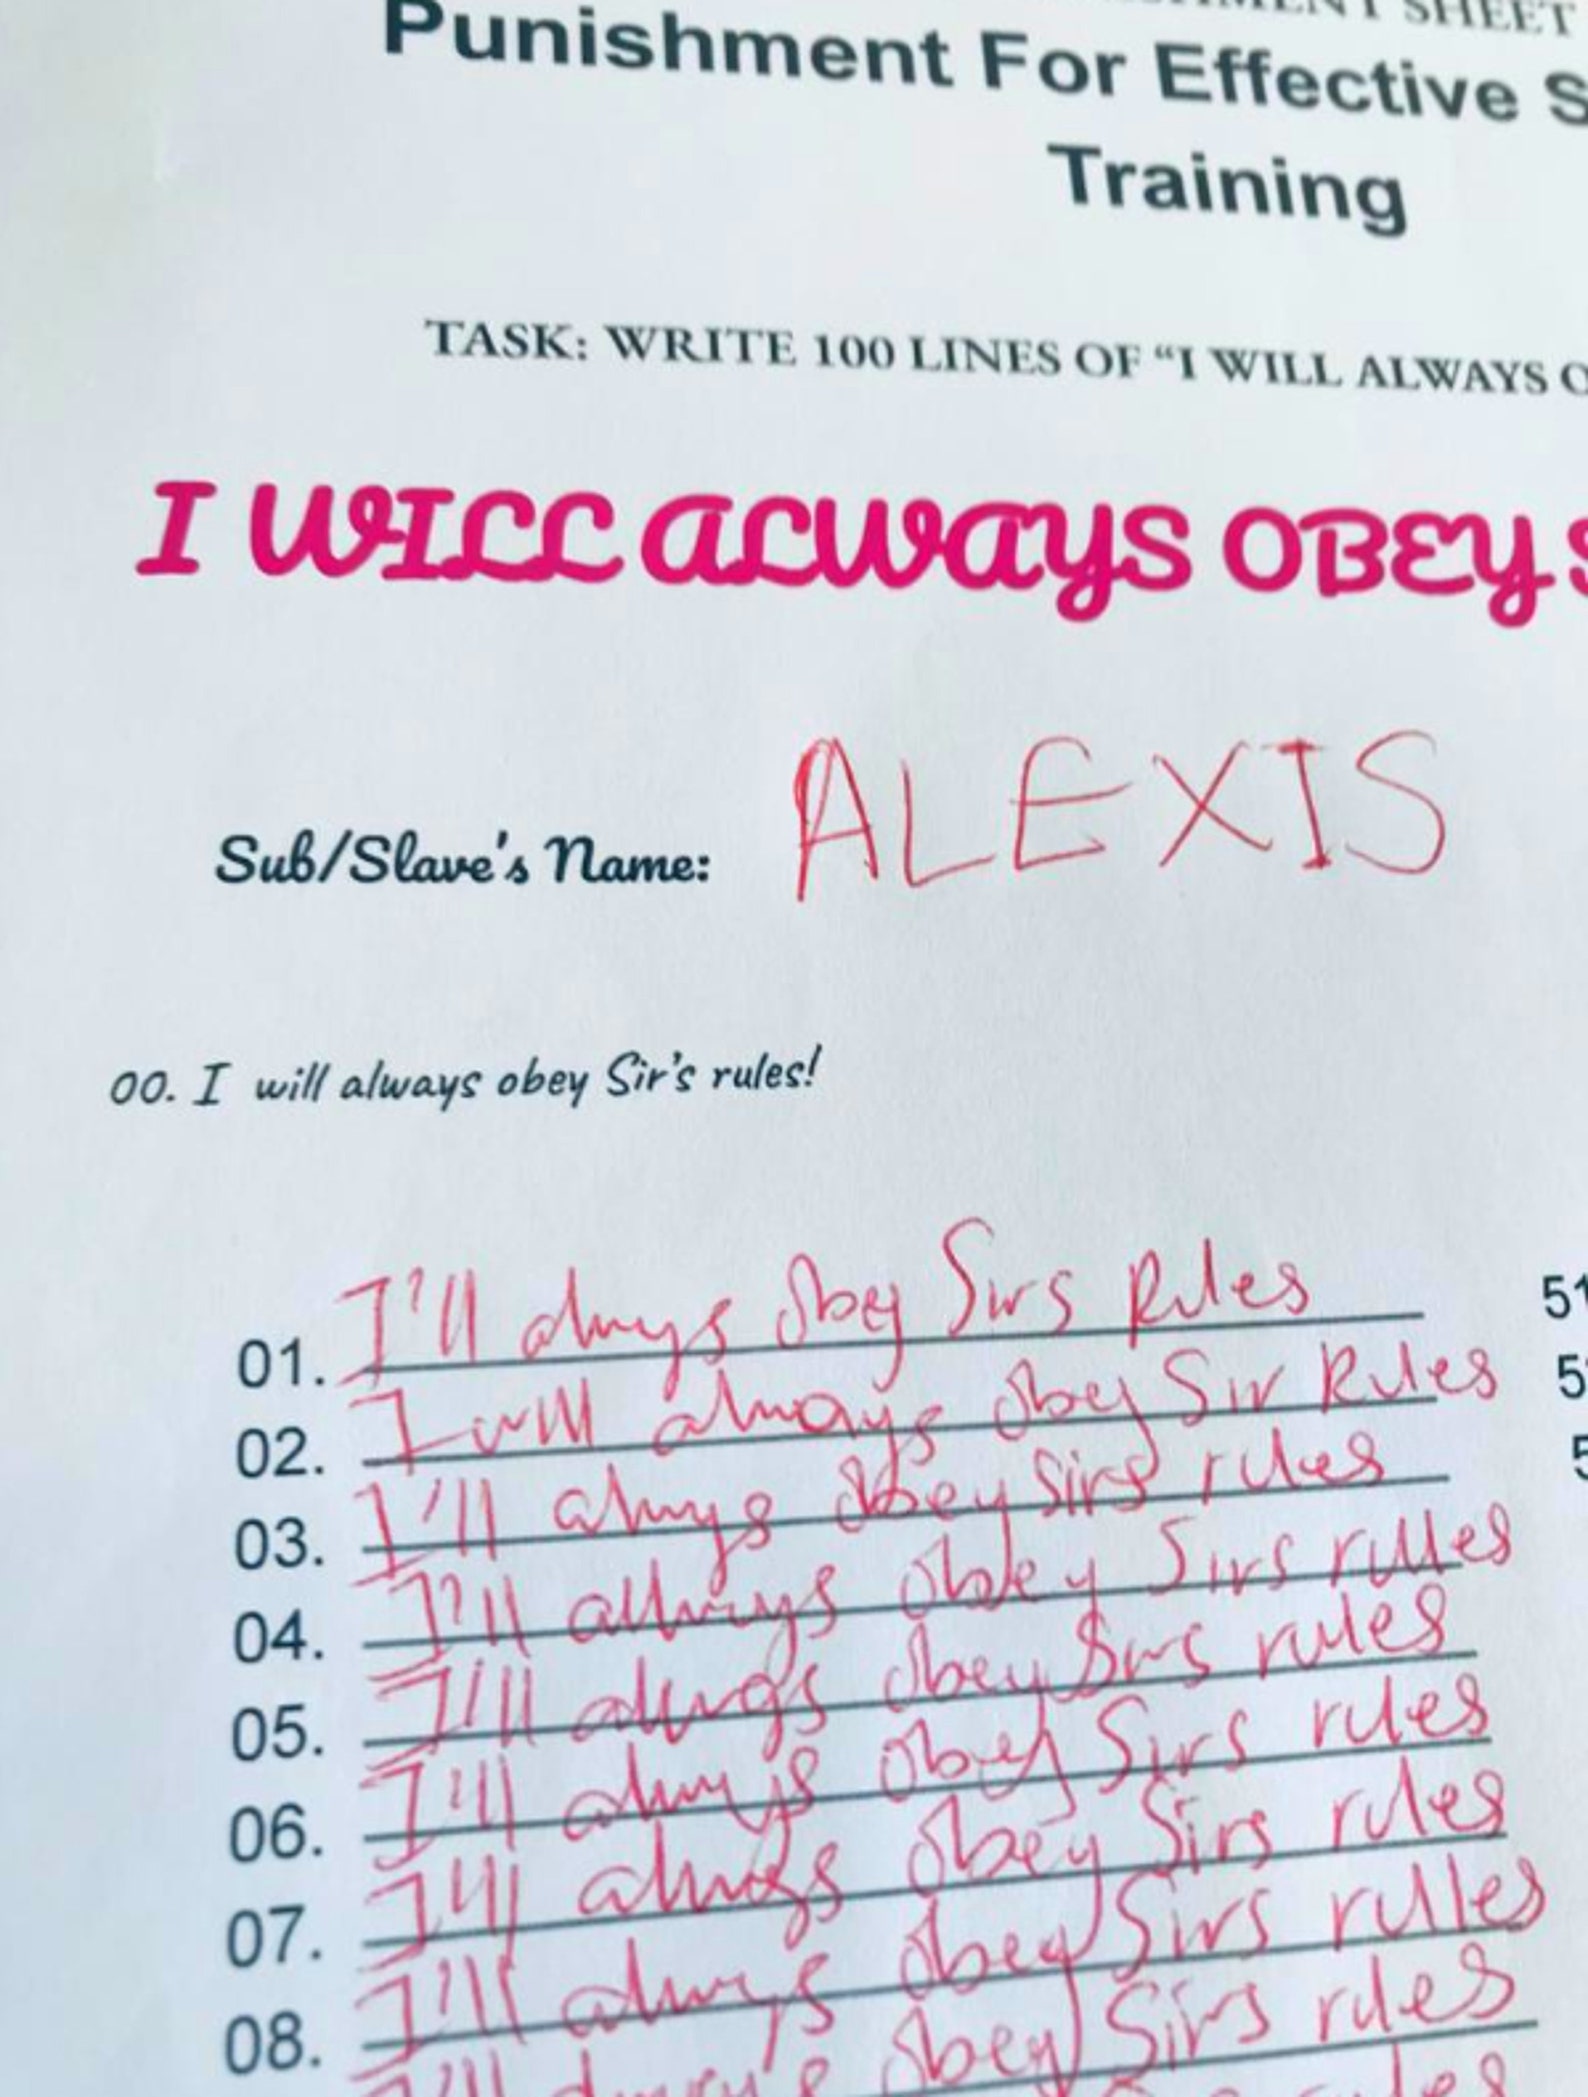 SHEET
Punishment For Effective
Training
TASK: WRITE 100 LINES OF “I WILL ALWAYS
I WILL ALWAYS OBEY
Sub/Slave's Name: ALEXIS
00. I will always obey Sir's rules!
01. I'll always obey Sirs Rules
51
02. I will always obey Sir Rules
03. I'll always obey Sirs rules
04. I'll always obey Sirs rules
05. I'll always obey Sirs rules
06. I'll always obey Sirs rules
07. I'll always obey Sirs rules
08. I'll always obey Sirs rules
obey Sirs rules